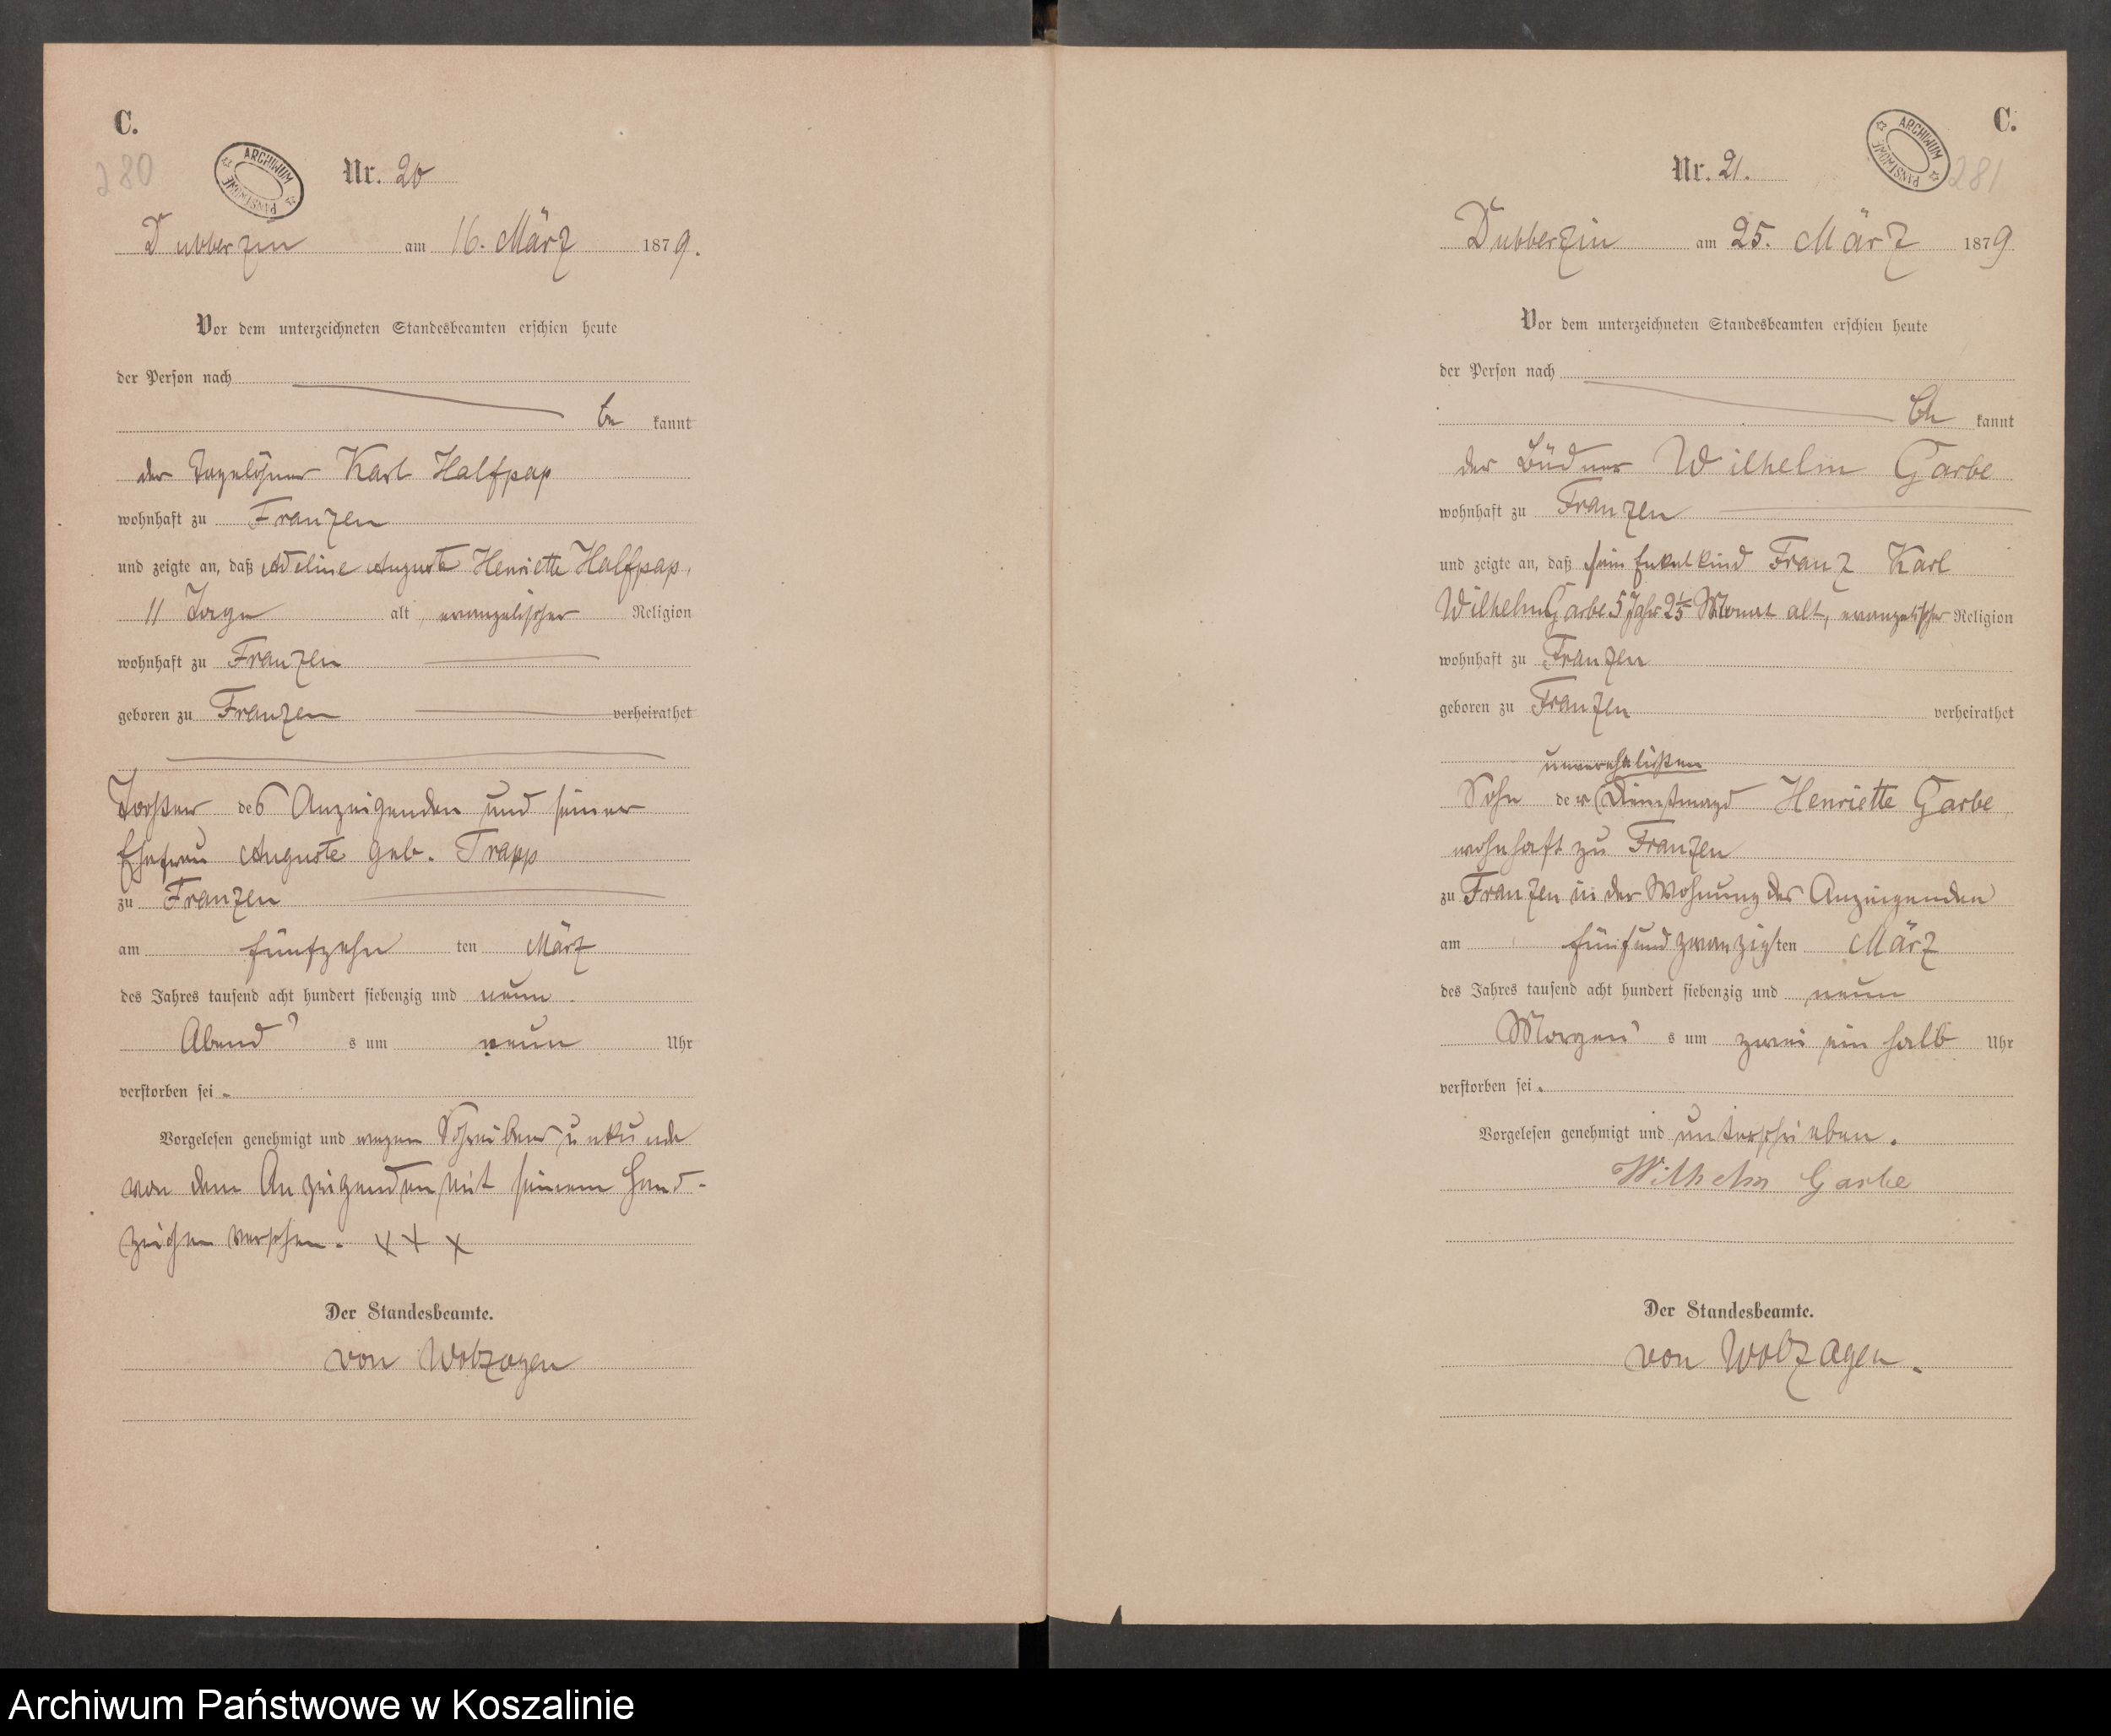 C.
280
ARCHIWUM PAŃSTWOWE
Nr. 20
Dubberzin am 16. März 1879.
Vor dem unterzeichneten Standesbeamten erschien heute
der Person nach
be kannt
der Tagelöhner Karl Halfpap
wohnhaft zu Franzen
und zeigte an, daß Adeline Auguste Henriette Halfpap,
11 Tage alt, evangelischer Religion
wohnhaft zu Franzen
geboren zu Franzen verheirathet
Tochter des Anzeigenden und seiner
Ehefrau Auguste geb. Trapp
zu Franzen
am fünfzehn ten März
des Jahres tausend acht hundert siebenzig und neun.
Abend s um neun Uhr
verstorben sei.
Vorgelesen genehmigt und wegen Schreibensunkunde
von dem Anzeigenden mit seinem Hand-
zeichen versehen. XXX
Der Standesbeamte.
von Wobzogen
C.
281
ARCHIWUM PAŃSTWOWE
Nr. 21.
Dubberzin am 25. März 1879
Vor dem unterzeichneten Standesbeamten erschien heute
der Person nach
be kannt
der Büdner Wilhelm Garbe
wohnhaft zu Franzen
und zeigte an, daß sein Enkelkind Franz Karl
Wilhelm Garbe 5 Jahr Monat alt, evangelischer Religion
wohnhaft zu Franzen
geboren zu Franzen verheirathet
unverehelichten
Sohn der Dienstmagd Henriette Garbe,
wohnhaft zu Franzen
zu Franzen in der Wohnung des Anzeigenden
am fünfundzwanzigsten März
des Jahres tausend acht hundert siebenzig und neun
Morgen s um zwei ein halb Uhr
verstorben sei.
Vorgelesen genehmigt und unterschrieben.
Wilhelm Garbe
Der Standesbeamte.
von Wobzogen.
Archiwum Państwowe w Koszalinie